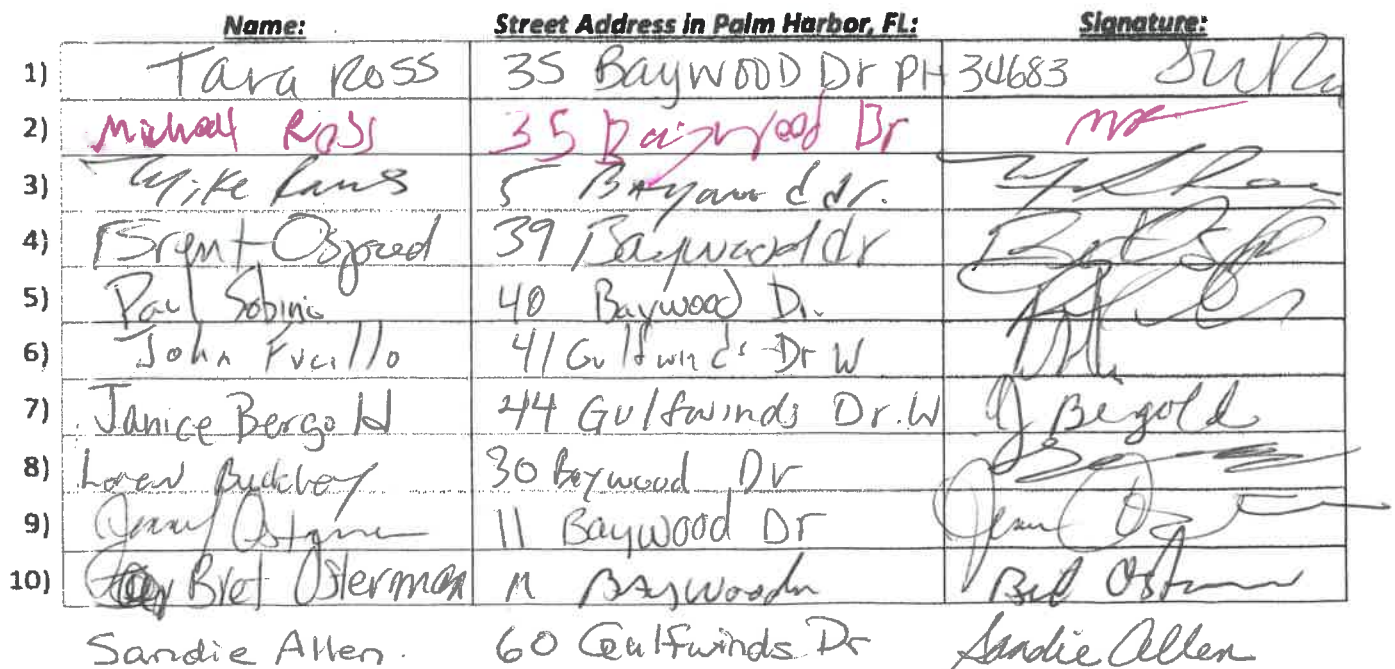 Name: Street Address in Palm Harbor, FL: Signature:
1) Tara Ross 35 Baywood Dr PH 34683
2) Michael Ross 35 Baywood Dr
3) Mike 5 Baywood dr.
4) Brent Osgood 39 Baywood dr
5) Paul Sobinio 40 Baywood Dr.
6) John Fucillo 41 Gulfwinds Dr W
7) Janice Bergold 44 Gulfwinds Dr. W J Bergold
8) Loren 30 Baywood Dr
9) Jenny 11 Baywood Dr
10) Bret Osterman 11 Baywood
Sandie Allen. 60 Gulfwinds Dr Sandie Allen